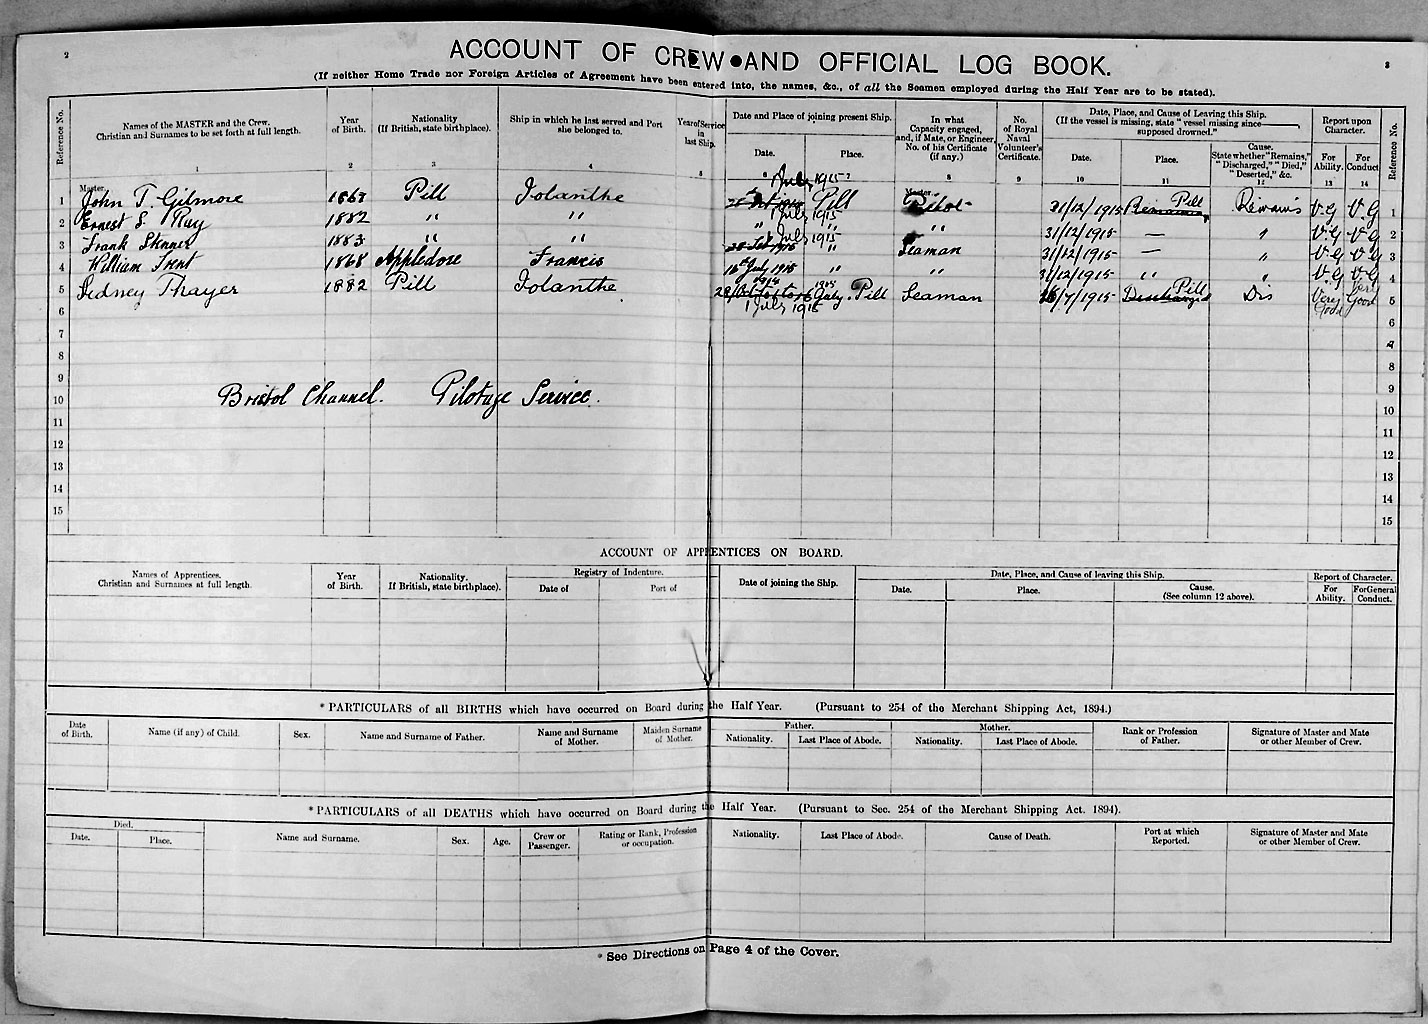 2
3
ACCOUNT OF CREW AND OFFICIAL LOG BOOK.
(If neither Home Trade nor Foreign Articles of Agreement have been entered into, the names, &c., of all the Seamen employed during the Half Year are to be stated).
Reference No. Names of the MASTER and the Crew. Christian and Surnames to be set forth at full length. Year of Birth. Nationality (If British, state birthplace). Ship in which he last served and Port she belonged to. Year of Service in last Ship. Date and Place of joining present Ship. Date. Place. In what Capacity engaged, and, if Mate, or Engineer, No. of his Certificate (if any.) No. of Royal Naval Volunteer's Certificate. Date, Place, and Cause of Leaving this Ship. (If the vessel is missing, state "vessel missing since supposed drowned." Date. Place. Cause. State whether "Remains," "Discharged," "Died," "Deserted," &c. Report upon Character. For Ability. For Conduct Reference No.
1 2 3 4 5 6 8 9 10 11 12 13 14
1 July 1915
1 Master. John T. Gilmore 1868 Pill Iolanthe Pill Master. Pilot 31/12/1915 Remaining Pill Remains V.G V.G 1
1 July 1915
2 Ernest S. Ray 1882 " " " " " 31/12/1915 — " V.G V.G 2
1 July 1915
3 Frank Skinner 1883 " " " Seaman 31/12/1915 — " V.G V.G 3
4 William Trent 1868 Appledore Francis 16th July 1915 " " 31/12/1915 " " V.G V.G 4
5 Sidney Thayer 1882 Pill Iolanthe July. Pill Seaman 16/7/1915 Discharged Pill Dis Very Good Very Good 5
1 July 1915
6 6
7 7
8 8
9 9
Bristol Channel. Pilotage Service.
10 10
11 11
12 12
13 13
14 14
15 15
ACCOUNT OF APPRENTICES ON BOARD.
Names of Apprentices. Christian and Surnames at full length. Year of Birth. Nationality. If British, state birthplace). Registry of Indenture. Date of Port of Date of joining the Ship. Date, Place, and Cause of leaving this Ship. Date. Place. Cause. (See column 12 above). Report of Character. For Ability. For General Conduct.
* PARTICULARS of all BIRTHS which have occurred on Board during the Half Year. (Pursuant to 254 of the Merchant Shipping Act, 1894.)
Date of Birth. Name (if any) of Child. Sex. Name and Surname of Father. Name and Surname of Mother. Maiden Surname of Mother. Father. Nationality. Last Place of Abode. Mother. Nationality. Last Place of Abode. Rank or Profession of Father. Signature of Master and Mate or other Member of Crew.
* PARTICULARS of all DEATHS which have occurred on Board during the Half Year. (Pursuant to Sec. 254 of the Merchant Shipping Act. 1894).
Died. Date. Place. Name and Surname. Sex. Age. Crew or Passenger. Rating or Rank, Profession or occupation. Nationality. Last Place of Abode. Cause of Death. Port at which Reported. Signature of Master and Mate or other Member of Crew.
* See Directions on Page 4 of the Cover.